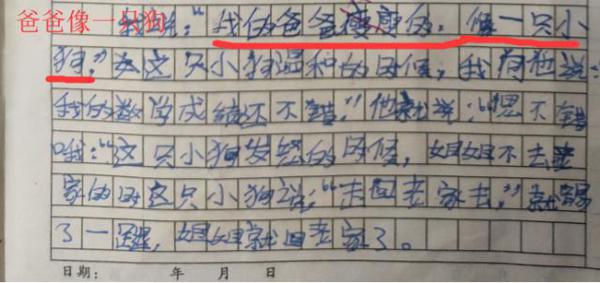 爸爸像一只狗
：“我的爸爸瘦瘦的，像一只小
狗，”这只小狗温和的时候，我他说：
我的数学成绩还不错，”他就说：“不错
哦：”这只小狗发怒的时候，姐姐不去老
家的时这只小狗说：“走回老家去，”就踢
了一，姐姐就回老家了。
日期： 年 月 日